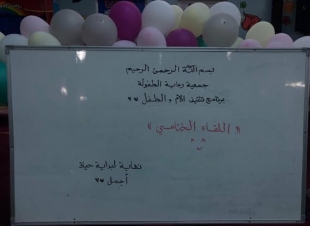 بسم الله الرحمن الرحيم
جمعية رعاية الطفولة
برنامج تثقيف الأم والطفل ٧٧
« اللقاء الختامي »
نهاية لبداية حياة
أجمل ٧٧